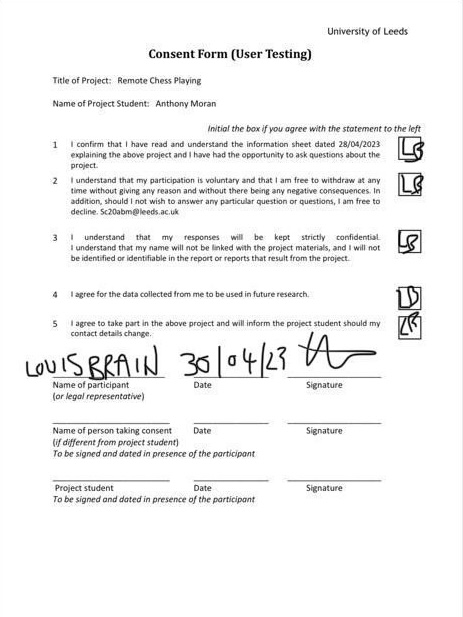 University of Leeds
Consent Form (User Testing)
Title of Project: Remote Chess Playing
Name of Project Student: Anthony Moran
Initial the box if you agree with the statement to the left
1 I confirm that I have read and understand the information sheet dated 28/04/2023 LB
explaining the above project and I have had the opportunity to ask questions about the
project.
2 I understand that my participation is voluntary and that I am free to withdraw at any LB
time without giving any reason and without there being any negative consequences. In
addition, should I not wish to answer any particular question or questions, I am free to
decline. Sc20abm@leeds.ac.uk
3 I understand that my responses will be kept strictly confidential. LB
I understand that my name will not be linked with the project materials, and I will not
be identified or identifiable in the report or reports that result from the project.
4 I agree for the data collected from me to be used in future research. LB
5 I agree to take part in the above project and will inform the project student should my LB
contact details change.
LOUIS BRAIN 30/04/23
Name of participant Date Signature
(or legal representative)
Name of person taking consent Date Signature
(if different from project student)
To be signed and dated in presence of the participant
Project student Date Signature
To be signed and dated in presence of the participant